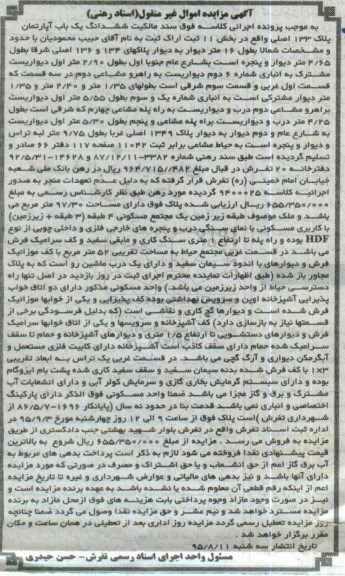 آگهی مزایده اموال غیر منقول(اسناد رهنی)
به موجب پرونده اجرائی کلاسه فوق سند مالکیت ششدانگ یک باب آپارتمان
پلاک ۱۳۳ اصلی واقع در بخش ۱۱ ثبت اراک ثبت به نام آقای حبیب محمودیان با حدود
و مشخصات شمالا بطول ۱۶ متر دیوار به دیوار پلاکهای ۱۳۴ و ۱۳۶ اصلی شرقا بطول
۴/۶۵ متر دیوار و پنجره است بشارع عام جنوبا اول بطول ۲/۹۰ متر اول دیواریست
مشترک به انباری شماره ۶ دوم دیواریست به راهرو مشاعی دوم در سه قسمت که
قسمت اول غربی و قسمت سوم شرقی است بطولهای ۱/۳۵ متر و ۲/۴۰ متر و ۱/۳۵
متر دیوار مشترکی است به انباری شماره یک و سوم بطول ۵/۵۵ متر اول دیواریست
براهرو مشاعی دوم درب و دیواریست به راه پله مشاعی چهارم که شرقی است بطول
۴/۲۵ متر درب و دیواریست براه پله مشاعی و پنجم بطول ۵/۳۰ متر اول دیواریست
به شارع عام و دوم دیوار به دیوار پلاک ۱۳۴۹ اصلی غربا بطول ۹/۷۵ متر لبه تراس
و دیوار و پنجره است به حیاط مشاعی برابر ثبت ۱۱۰۴۲ صفحه ۱۱۷ دفتر ۶۶ صادر و
تسلیم گردیده است طبق سند رهنی شماره ۳۳۸۲-۸۷/۱۲/۱۱ و ۱۴۶۲۸-۹۲/۵/۳۱
دفترخانه ۲۰ تفرش در قبال مبلغ ۹۶۴/۷۱۵/۴۸۲ ریال در رهن بانک ملی شعبه
خیابان امام خمینی (ره) تفرش قرار گرفته که به دلیل عدم تعهدات منجر به صدور
اجرائیه کلاسه ۹۴۰۰۰۲۵ گردیده مورد رهن طبق نظر کارشناس رسمی به مبلغ
۶۵۵/۳۵۰/۰۰۰ ریال ارزیابی شده پلاک فوق دارای مساحت ۹۷/۳۰ متر مربع می
باشد و ملک موصوف طبقه زیر زمین یک مجتمع مسکونی ۴ طبقه (۳ طبقه + زیرزمین)
با کاربری مسکونی با نمای سنگی درب و پنجره های خارجی فلزی و داخلی چوبی از نوع
HDF بوده و راه پله تا ارتفاع ۱ متری سنگ کاری و مابقی سفید و کف سرامیک فرش
می باشد در قسمت غربی مجتمع حیاط به مساحت تقریبی ۵۲ متر مربع با کف موزائیک
فرش و دیوارهای با اندود سیمان سفید و دارای یک درب ماشین رو است که به پلاک
مجاور باز شده (طبق اظهارات نماینده محترم اجرای ثبت در روز بازدید در اصل تنها راه
دسترسی حیاط از واحد زیرزمین می باشد.) واحد مسکونی مذکور دارای دو اتاق خواب
پذیرایی آشپزخانه اوپن و سرویس بهداشتی بوده کف پذیرایی و یکی از خوابها موزائیک
فرش شده است و دیوارها گچ کاری و نقاشی است (که بدلیل فرسودگی برخی از
قسمتها نیاز به بازسازی دارد) کف آشپزخانه و سرویسها و یکی از اتاق خوابها سرامیک
فرش و دیوارهای دستشویی تا ارتفاع ۱/۵ متری و دیوارهای آشپزخانه و حمام تا سقف
سرامیک شده حمام دارای سقف کاذب است آشپزخانه دارای کابینت فلزی مستعمل و
آبگرمکن دیواری و آرک گچی می باشد. در قسمت غربی یک تراس به ابعاد تقریبی
۱×۳ با کف فرش شده بدنه سیمان سفید و سقف سفید کاری شده پشت بام ایزوگام
بوده و دارای سیستم گرمایش بخاری گازی و سرمایش کولر آبی و دارای انشعابات آب
مشترک و برق و گاز مجزا می باشد ضمنا واحد مسکونی فوق الذکر دارای پارکینگ
اختصاصی و انباری نمی باشد قدمت بنا در حدود نه سال (پایانکار ۱۶۹۶-۸۶/۵/۷ از
شهرداری تفرش) است پلاک فوق از ساعت ۹ الی ۱۲ روز چهارشنبه مورخ ۹۵/۹/۳ در
اداره ثبت اسناد تفرش واقع در تفرش بلوار شهید بهشتی جنب دادگستری از طریق
مزایده به فروش می رسد . مزایده از مبلغ ۶۵۵/۳۵۰/۰۰۰ ریال شروع به بالاترین
قیمت پیشنهادی نقدا فروخته می شود لازم به ذکر است پرداخت بدهی های مربوط به
آب برق گاز اعم از حق انشعاب و یا حق اشتراک و مصرف در صورتی که مورد مزایده
دارای آنها باشد و نیز بدهی های مالیاتی و عوارض شهرداری و غیره تا تاریخ مزایده
اعم از اینکه رقم قطعی آن معلوم شده یا نشده باشد به عهده برنده مزایده است و
نیز در صورت وجود مازاد وجوه پرداختی بابت هزینه های فوق ازمحل مازاد به برنده
مزایده مسترد خواهد شد و نیم عشر و حق مزایده نقدا وصول می گردد ضمنا چنانچه
روز مزایده تعطیل رسمی گردد مزایده روز اداری بعد از تعطیلی در همان ساعت و مکان
مقرر برگزار خواهد شد .
تاریخ انتشار سه شنبه ۹۵/۸/۱۱
مسئول واحد اجرای اسناد رسمی تفرش- حسن حیدری